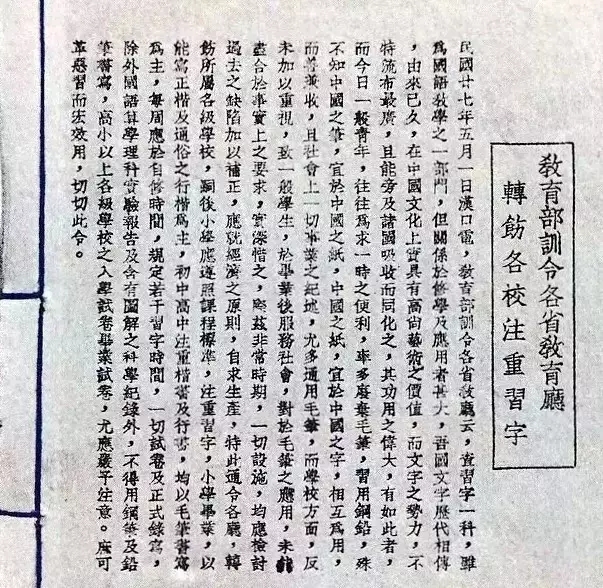 教育部訓令各省教育廳
轉飭各校注重習字
民國廿七年五月一日漢口電，教育部訓令各省教廳云，查習字一科，雖
為國語教學之一部門，但關係於修學及應用者甚大，吾國文字歷代相傳
，由來已久，在中國文化上實具有高尚藝術之價值，而文字之勢力，不
特流布最廣，且能旁及諸國吸收而同化之，其功用之偉大，有如此者，
而今日一般青年，往往為求一時之便利，率多廢棄毛筆，習用鋼鉛，殊
不知中國之筆，宜於中國之紙，中國之紙，宜於中國之字，相互為用，
而善兼收，且社會上一切事業之紀述，尤多通用毛筆，而學校方面，反
未加以重視，致一般學生，於畢業後服務社會，對於毛筆之應用，未能
盡合於事實上之要求，實深惜之，際茲非常時期，一切設施，均應檢討
過去之缺陷加以補正，應就經濟之原則，自求生產，特此通令各廳，轉
飭所屬各級學校，嗣後小學應遵照課程標準，注重習字，小學畢業，以
能寫正楷及通俗之行楷為主，初中高中注重楷書及行書，均以毛筆書寫
為主，每周應於自修時間，規定若干習字時間，一切試卷及正式錄寫，
除外國語算學理科實驗報告及含有圖解之科學紀錄外，不得用鋼筆及鉛
筆書寫，高小以上各級學校之入學試卷畢業試卷，尤應嚴予注意。庶可
革惡習而宏效用，切切此令。